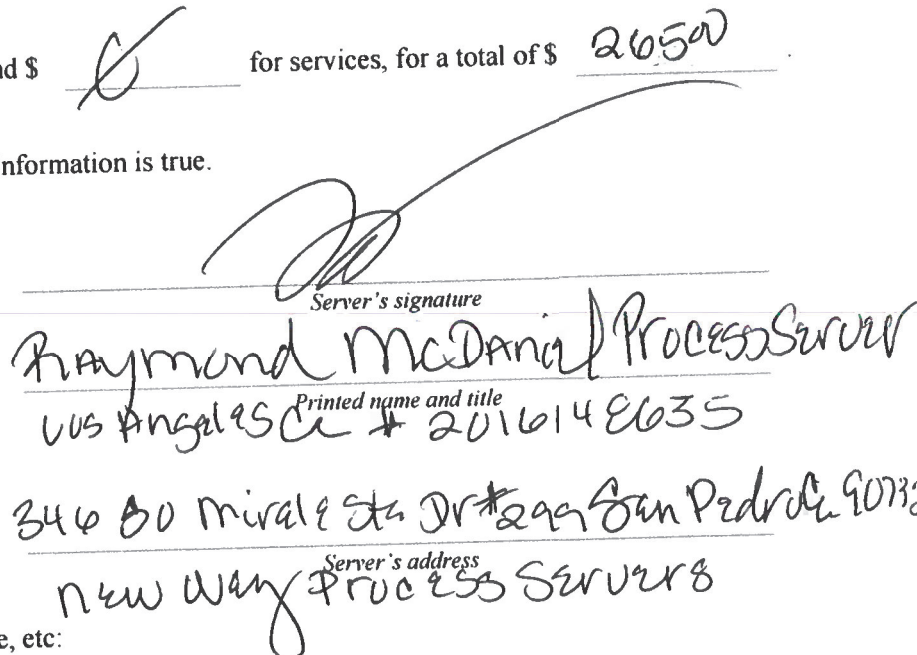 nd $ 0 for services, for a total of $ 26500
nformation is true.
Server's signature
Raymond McDaniel Process Server
Printed name and title
Los Angeles Ca # 2016148635
346 So Miraleste Dr #299 San Pedro Ca 90732
Server's address
New Way Process Servers
e, etc: